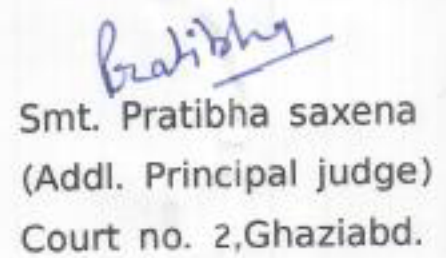 Pratibha
Smt. Pratibha saxena
(Addl. Principal judge)
Court no. 2,Ghaziabd.